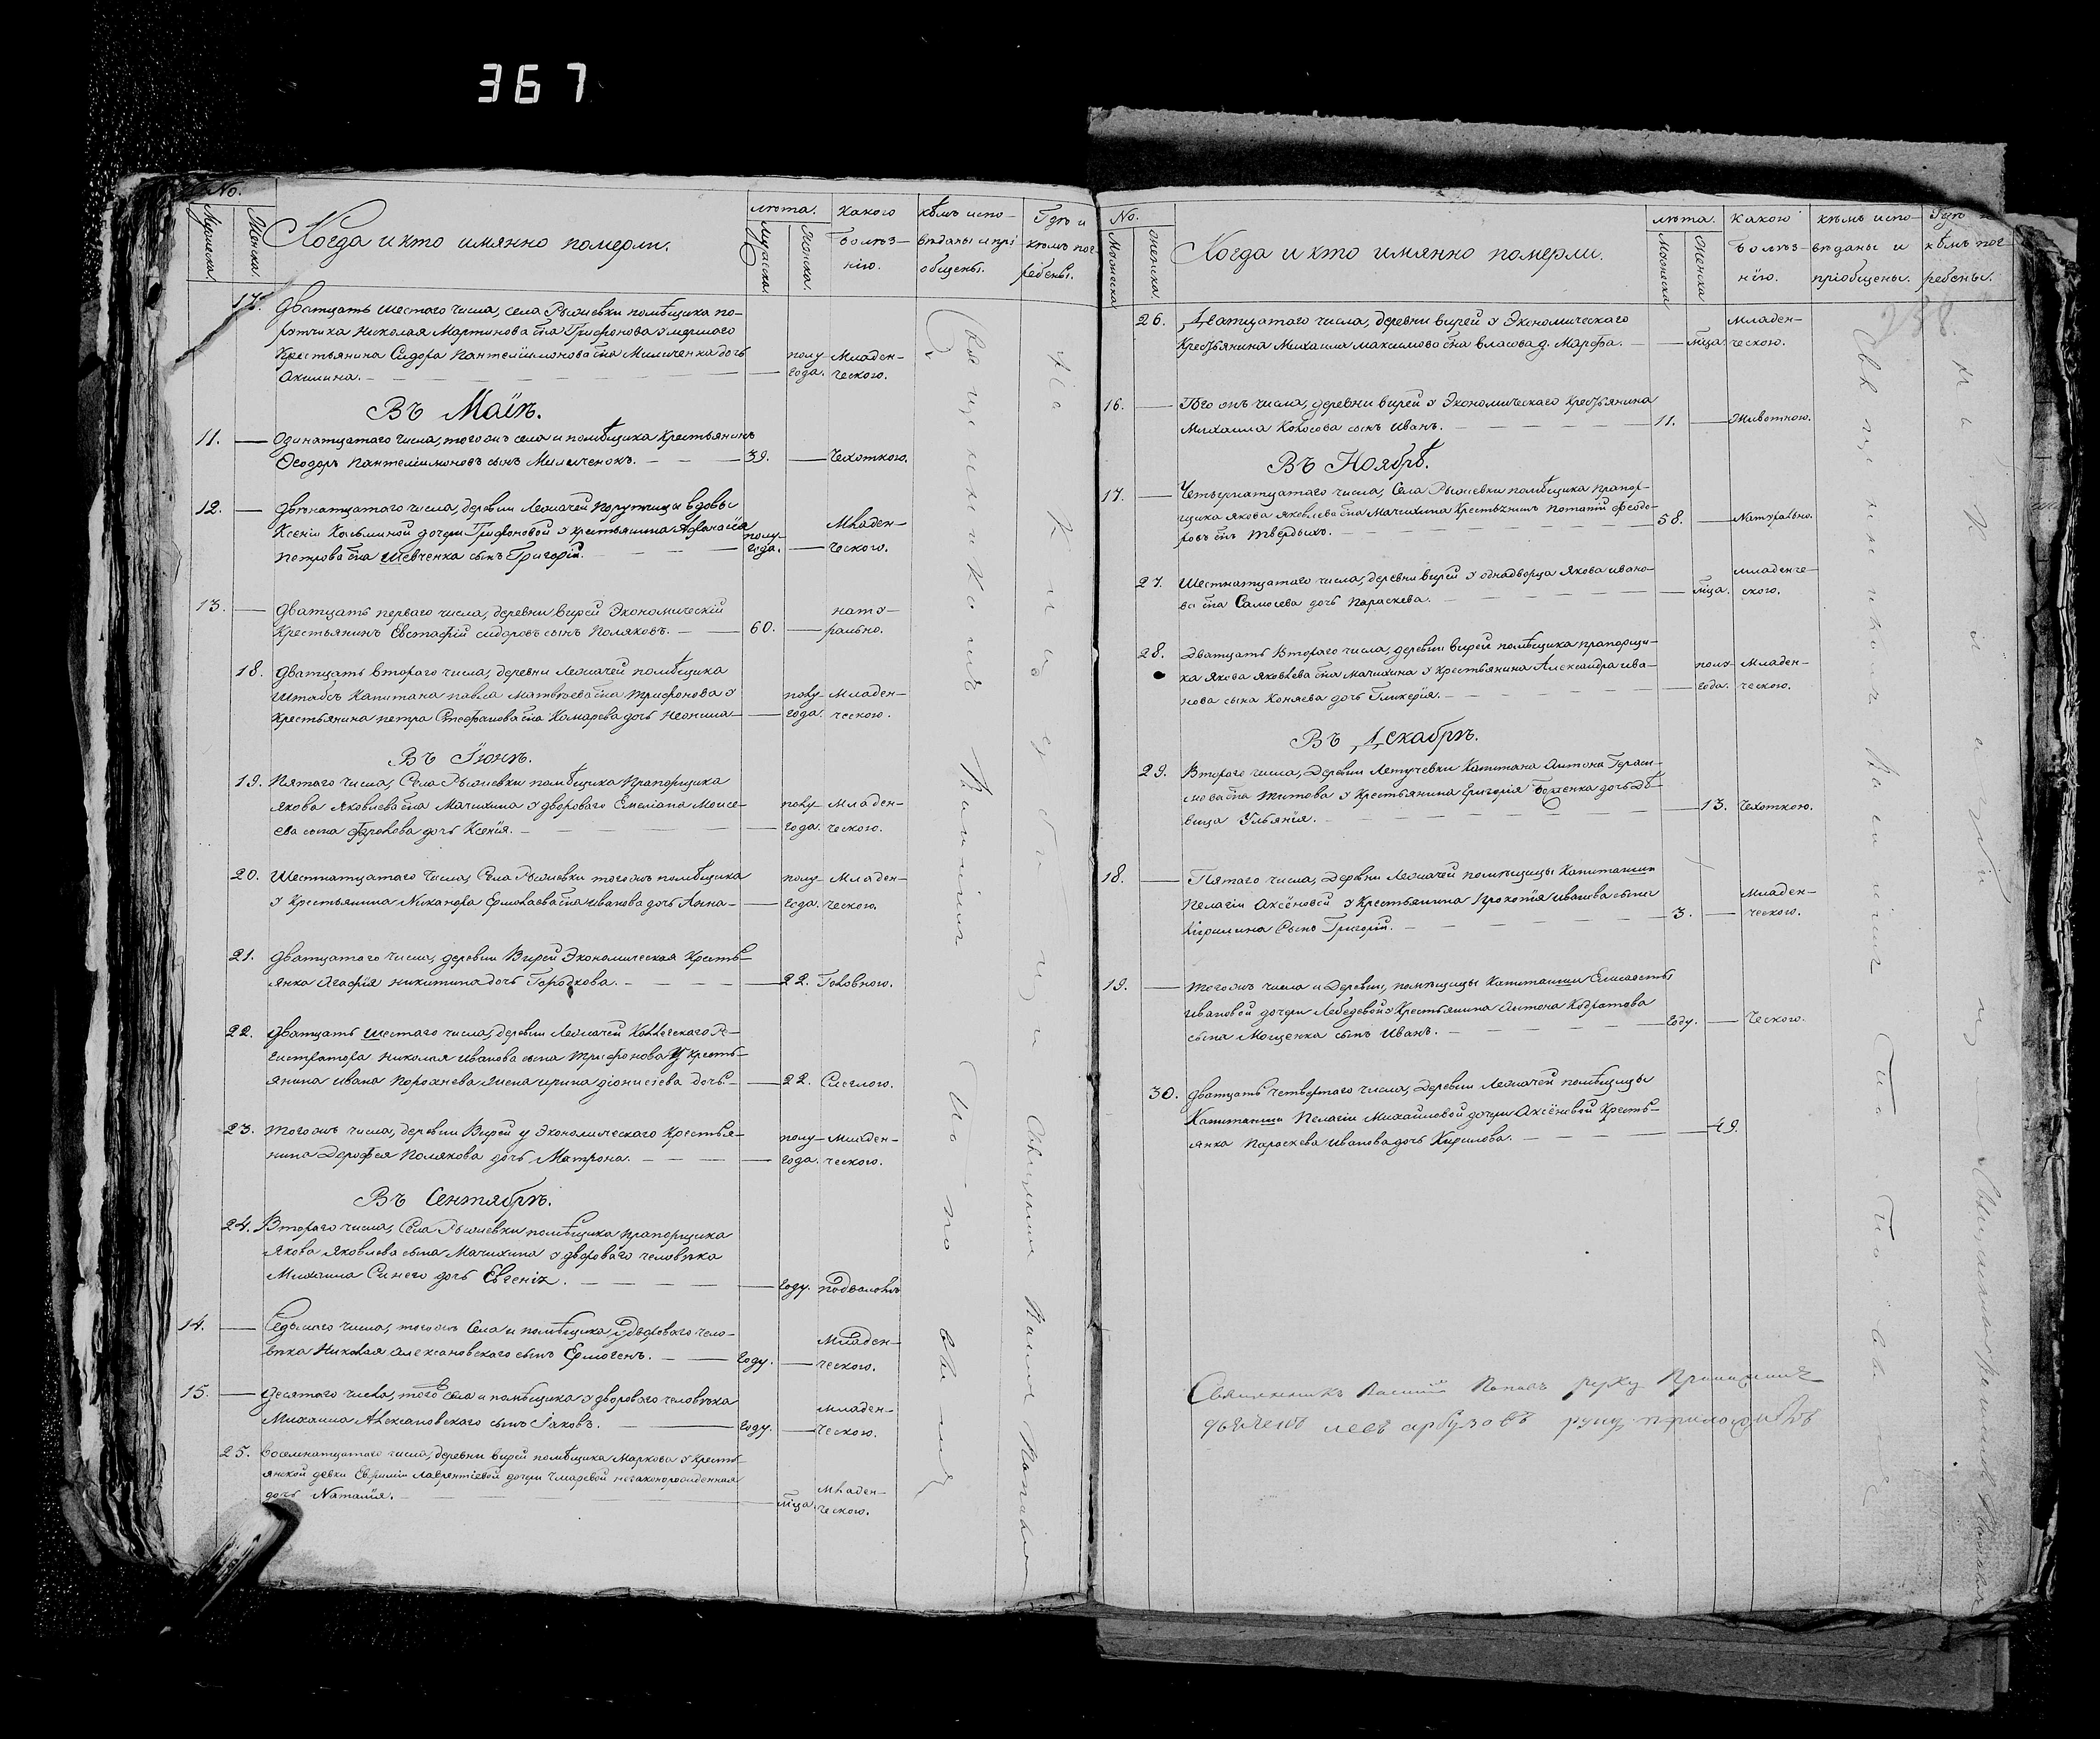 367
No.
Мужеска.
Женска.
Когда и кто имянно померли.
лѣта.
Мужеска.
Женска.
какою
болѣз-
нію.
кѣмъ испо-
вѣданы и прі
общены.
Гдѣ и
кѣмъ пог-
ребены.
17. Дватцать шестаго числа, села Рыжевки помѣщика по-
ручика Николая Мартинова сна Трифонова умершаго
Крестьянина Сидора Пантелiимонова сна Миличенка дочь
Акилина. — полу года. Младен-ческою.
Въ Маiѣ.
11. Одинатцатаго числа, того жъ села и помѣщика Крестьянинъ
Ѳеодоръ Пантелiимоновъ сынъ Миличенокъ. — 39. — Чехоткою.
12. Двѣнатцатаго числа, деревни Лежачей порутчицы вдовы
Ксенiи Козьминой дочери Трифоновой у крестьянина Аѳанасiя
Петрова сна Шевченка сынъ Григорiй. — полу года. — Младен-ческою.
13. Дватцать перваго числа, деревни Вирей Экономическiй
Крестьянинъ Евстафiй Сидоровъ сынъ Поляковъ. — 60. — нату-рально.
18. Дватцать втораго числа, деревни Лежачей помѣщика
Штабсъ Капитана Павла Матвѣева сна Трифонова у
Крестьянина Петра Стефанова сна Комарева дочь Неонила — полу года. Младен-ческою.
Въ Iюнѣ.
19. Пятаго числа, Села Рыжевки помѣщика Прапорщика
Якова Яковлева сна Мачихина у двороваго Емелiана Моисе-
ева сына Фролова дочь Ксенiя. — полу года. Младен-ческою.
20. Шестнатцатаго числа, Села Рыжевки того жъ помѣщика
у Крестьянина Никанора Ермолаева сна Иванова дочь Анна — полу года. Младен-ческою.
21. Дватцатаго числа, деревни Вирей Экономическая Кресть-
янка Агафiя Никитина дочь Городкова. — 22. Головною.
22. Дватцать шестаго числа, деревни Лежачей Коллегскаго Ре-
гистратора Николая Иванова сына Трифонова у кресть-
янина Ивана Порохнева жена Ирина Дiонисiева дочь — 22.
23. Того жъ числа, деревни Вирей у Экономическаго Крестья-
нина Дерофея Полякова дочь Матрона. — полу года. Младен-ческою.
Въ Сентябрѣ.
24. Втораго числа, Села Рыжевки помѣщика Прапорщика
Якова Яковлева сына Мачихина у двороваго человѣка
Михаила Синего дочь Евгенiя. — году.
14. Седьмаго числа, того жъ Села и помѣщика, у двороваго чело-
вѣка Николая Александровскаго сынъ Ермогенъ. — году. — Младен-ческою.
15. Десятаго числа, того села и помѣщика у двороваго человѣка
Михаила Александровскаго сынъ Iаковъ. — году. — Младен-ческою.
25. Восемнатцатаго числа, деревни Вирей помѣщика Маркова у Кресть-
янской девки Евфимiи Лаврентiевой дочери незаконорожденная
дочь Наталiя. — мѣсца. Младен-ческою.
Священникомъ Василiемъ Поповымъ
No.
Мужеска
Женска.
Когда и кто имянно померли.
лѣта.
Мужеска
Женска
какою
болѣз-
нiю.
кѣмъ испо-
вѣданы и
прiобщены.
Гдѣ и
кѣмъ пог-
ребены.
26. Дватцатаго числа, деревни Вирей у Экономическаго
Крестьянина Михаила Максимова сна Власова д. Марфа. — мѣсца. Младен-ческою.
16. Того жъ числа, деревни Вирей у Экономическаго Крестьянина
Михаила Колосова сынъ Иванъ. — 11. — Животною.
Въ Ноябрѣ.
17. Четырнатцатаго числа, Села Рыжевки помѣщика Прапор-
щика Якова Яковлева сна Мачихина Крестьянинъ Потапiй Феодо-
ровъ снъ Твердыхъ. — 58. — Натурально.
27. Шестнатцатаго числа, деревни Вирей у однадворца Якова Ивано-
ва сна Самосева дочь Параскева. — мѣсца. Младенче-скою.
28. Дватцать Втораго числа, деревни Вирей помѣщика прапорщи-
ка Якова Яковлева сна Мачихина у крестьянина Александра Ива-
нова сына Коняева дочь Гликерiя. — полу года. Младен-ческою.
Въ Декабрѣ.
29. Втораго числа, Деревни Летучевки Капитана Антона Гераси-
мова сна Титова у Крестьянина Григорiя дочь Дѣ-
вица Ульянiя. — 13. Чехоткою.
18. Пятаго числа, Деревни Лежачей помѣщицы Капитанши
Пелагiи Аксёновой у Крестьянина Прокопiя Иванова сына
сынъ Григорiй. — 3. — Младен-ческою.
19. Того жъ числа и Деревни, помѣщицы Капитанши Елисаветы
Ивановой дочери Лебедевой у Крестьянина Антона Кодратова
сына Мощенка сынъ Иванъ. — году. — ческою.
30. Дватцать четвертаго числа, Деревни Лежачей помѣщицы
Капитанши Пелагiи Михайловой дочери Аксёновой Кресть-
янка Параскева Иванова дочь Кирилова. — 49.
Священникъ Василiй Поповъ руку Приложилъ
дьячекъ левъ арбузовъ руку приложилъ